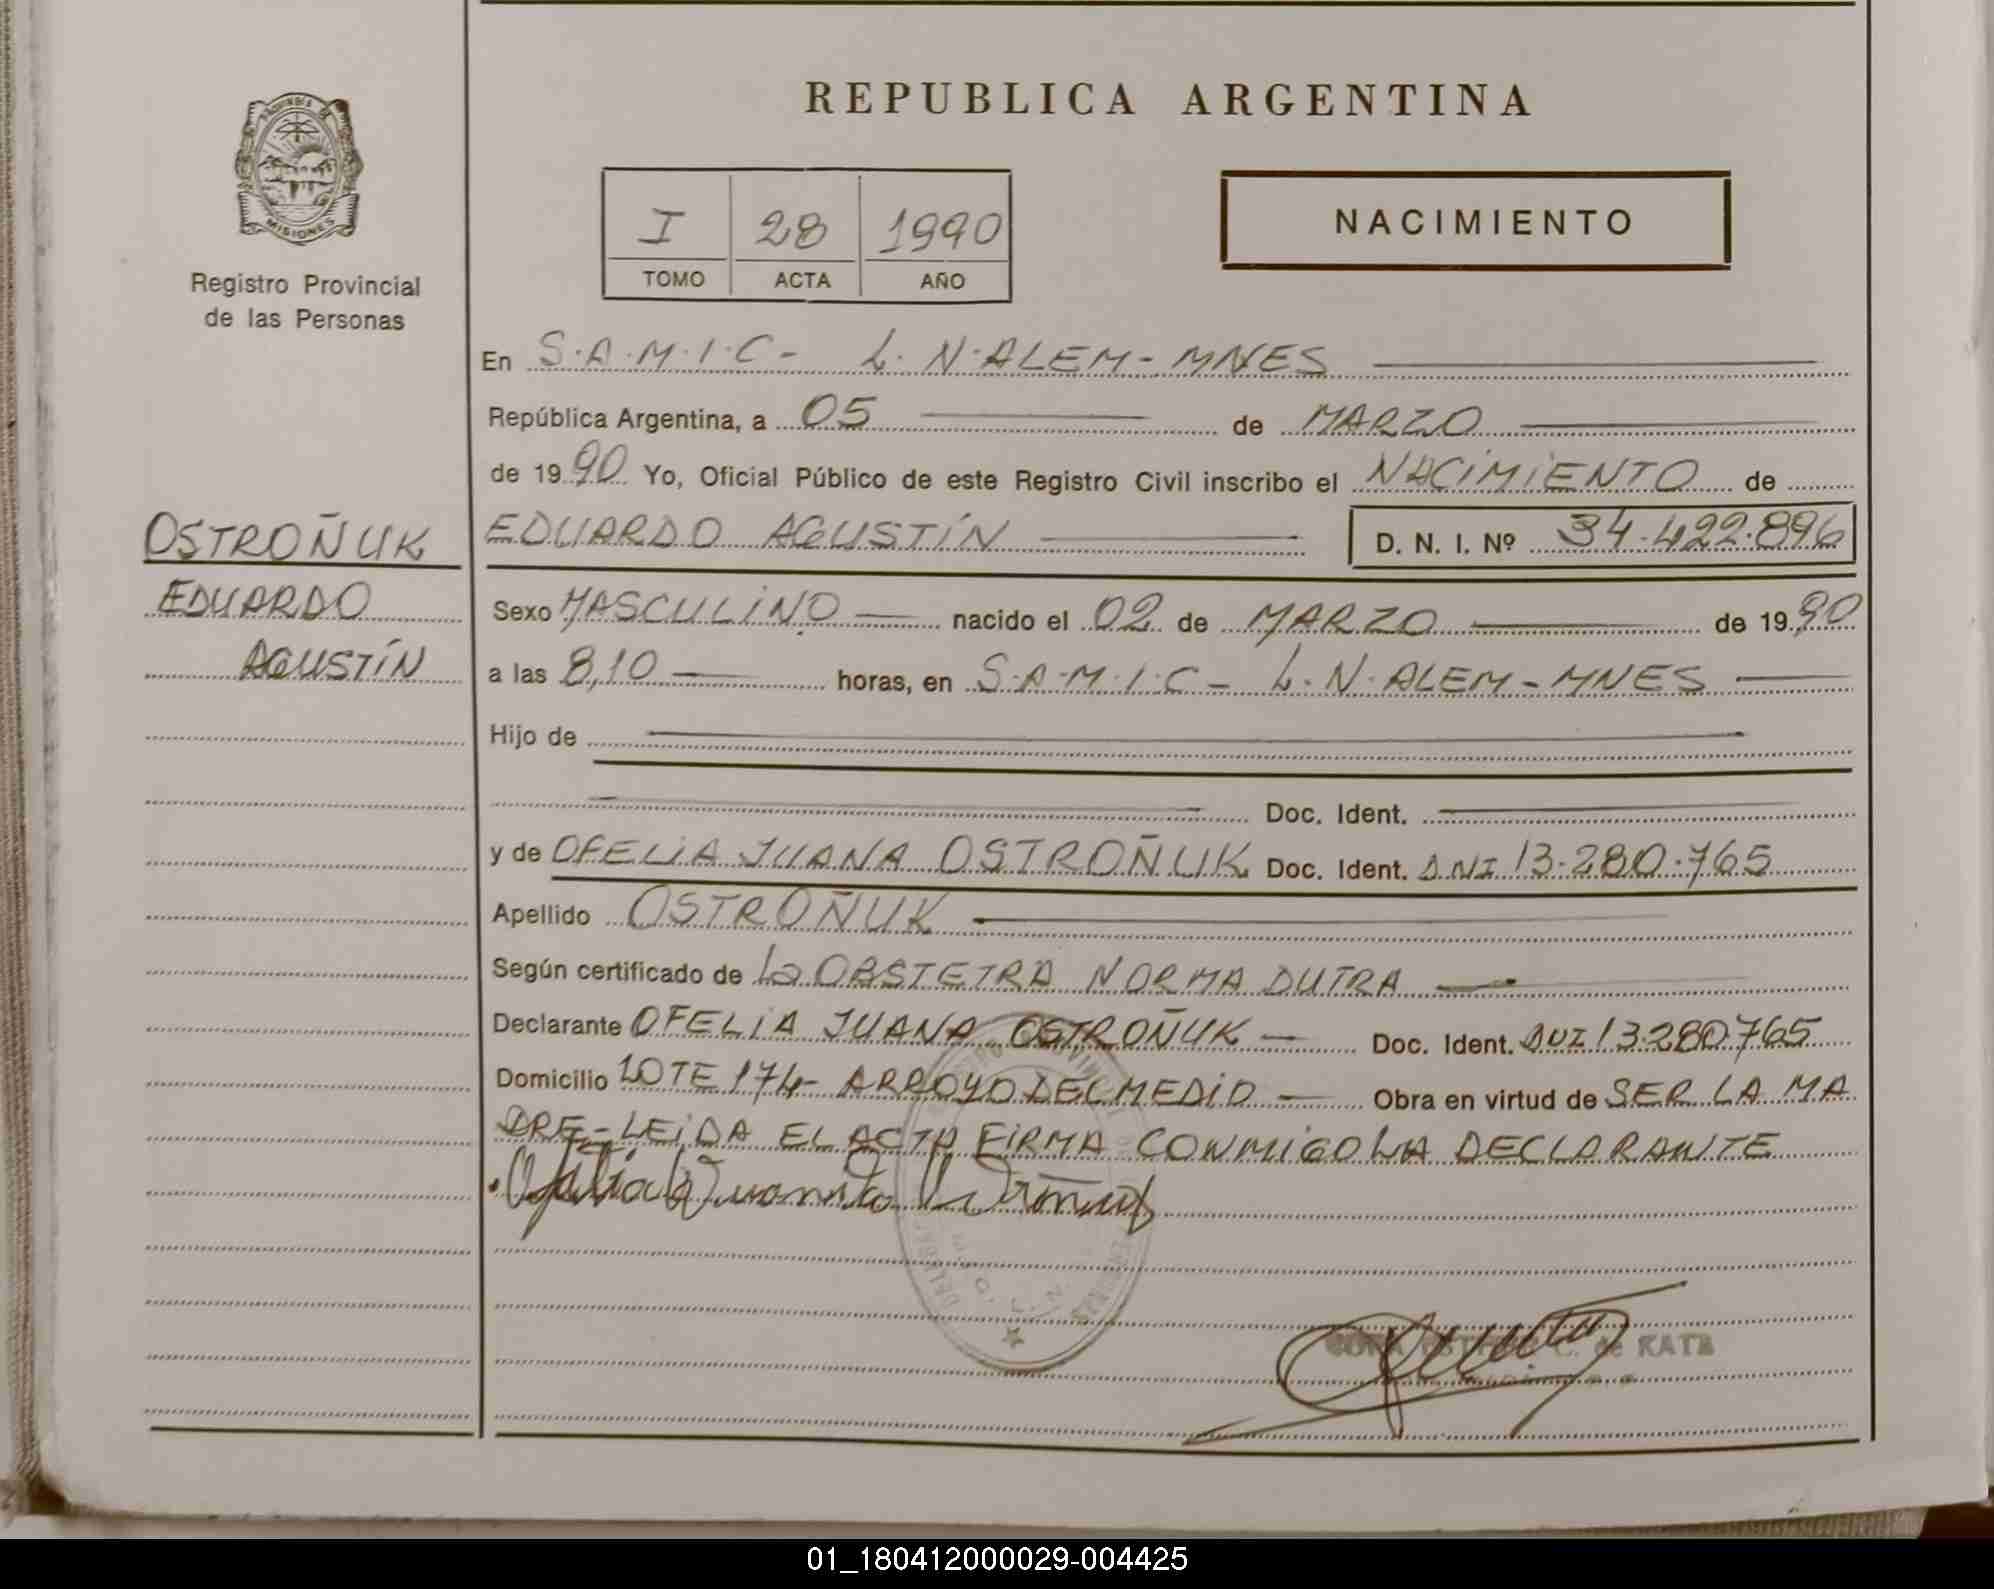 PROVINCIA DE
MISIONES
Registro Provincial
de las Personas
REPUBLICA ARGENTINA
I 28 1990
TOMO ACTA AÑO
NACIMIENTO
En S.A.M.I.C- L.N.ALEM-MNES
República Argentina, a 05 de MARZO
de 1990 Yo, Oficial Público de este Registro Civil inscribo el NACIMIENTO de
OSTROÑUK
EDUARDO
AGUSTÍN
EDUARDO AGUSTÍN D. N. I. Nº 34.422.896
Sexo MASCULINO nacido el 02 de MARZO de 1990
a las 8,10 horas, en S.A.M.I.C- L.N.ALEM-MNES
Hijo de
Doc. Ident.
y de OFELIA JUANA OSTROÑUK Doc. Ident. DNI 13.280.765
Apellido OSTROÑUK
Según certificado de La OBSTETRA NORMA DUTRA
Declarante OFELIA JUANA OSTROÑUK Doc. Ident. DNI 13.280.765
Domicilio LOTE 174- ARROYO DEL MEDIO Obra en virtud de SER LA MA
DRE-LEIDA EL ACTA FIRMA CONMIGO LA DECLARANTE
C. de KATZ
01_180412000029-004425